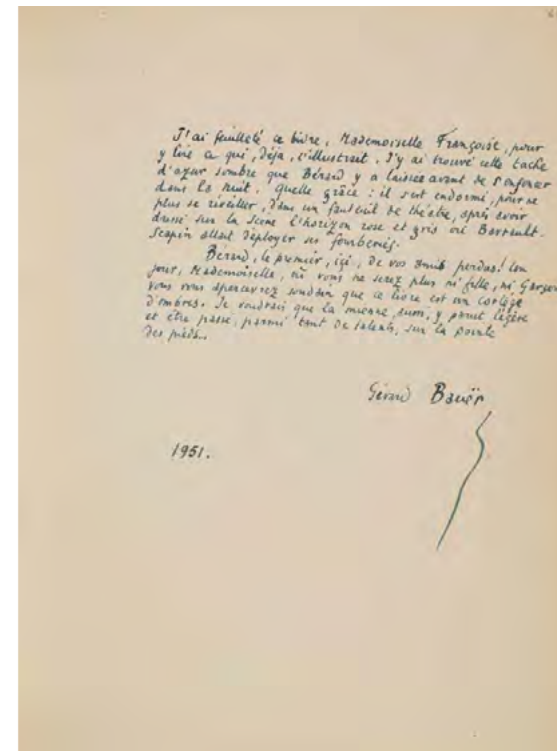 J'ai feuilleté ce livre, Mademoiselle Françoise, pour
y lire ce qui, déjà, l'illustrait. J'y ai trouvé cette tache
d'azur sombre que Bérard y a laissée avant de s'enfoncer
dans la nuit. Quelle grâce : il s'est endormi, pour ne
plus se réveiller, dans un fauteuil de théâtre, après avoir
dressé sur la scène l'horizon rose et gris où Barrault-
Scapin allait déployer ses fourberies.
Bérard, le premier, ici, de vos amis perdus! Un
jour, Mademoiselle, où vous ne serez plus ni fille, ni Garçon
vous vous apercevrez soudain que ce livre est un cortège
d'ombres. Je voudrais que la mienne, aussi, y parut légère
et être passé, parmi tant de talents, sur la pointe
des pieds..
Gérard Bauër
1951.